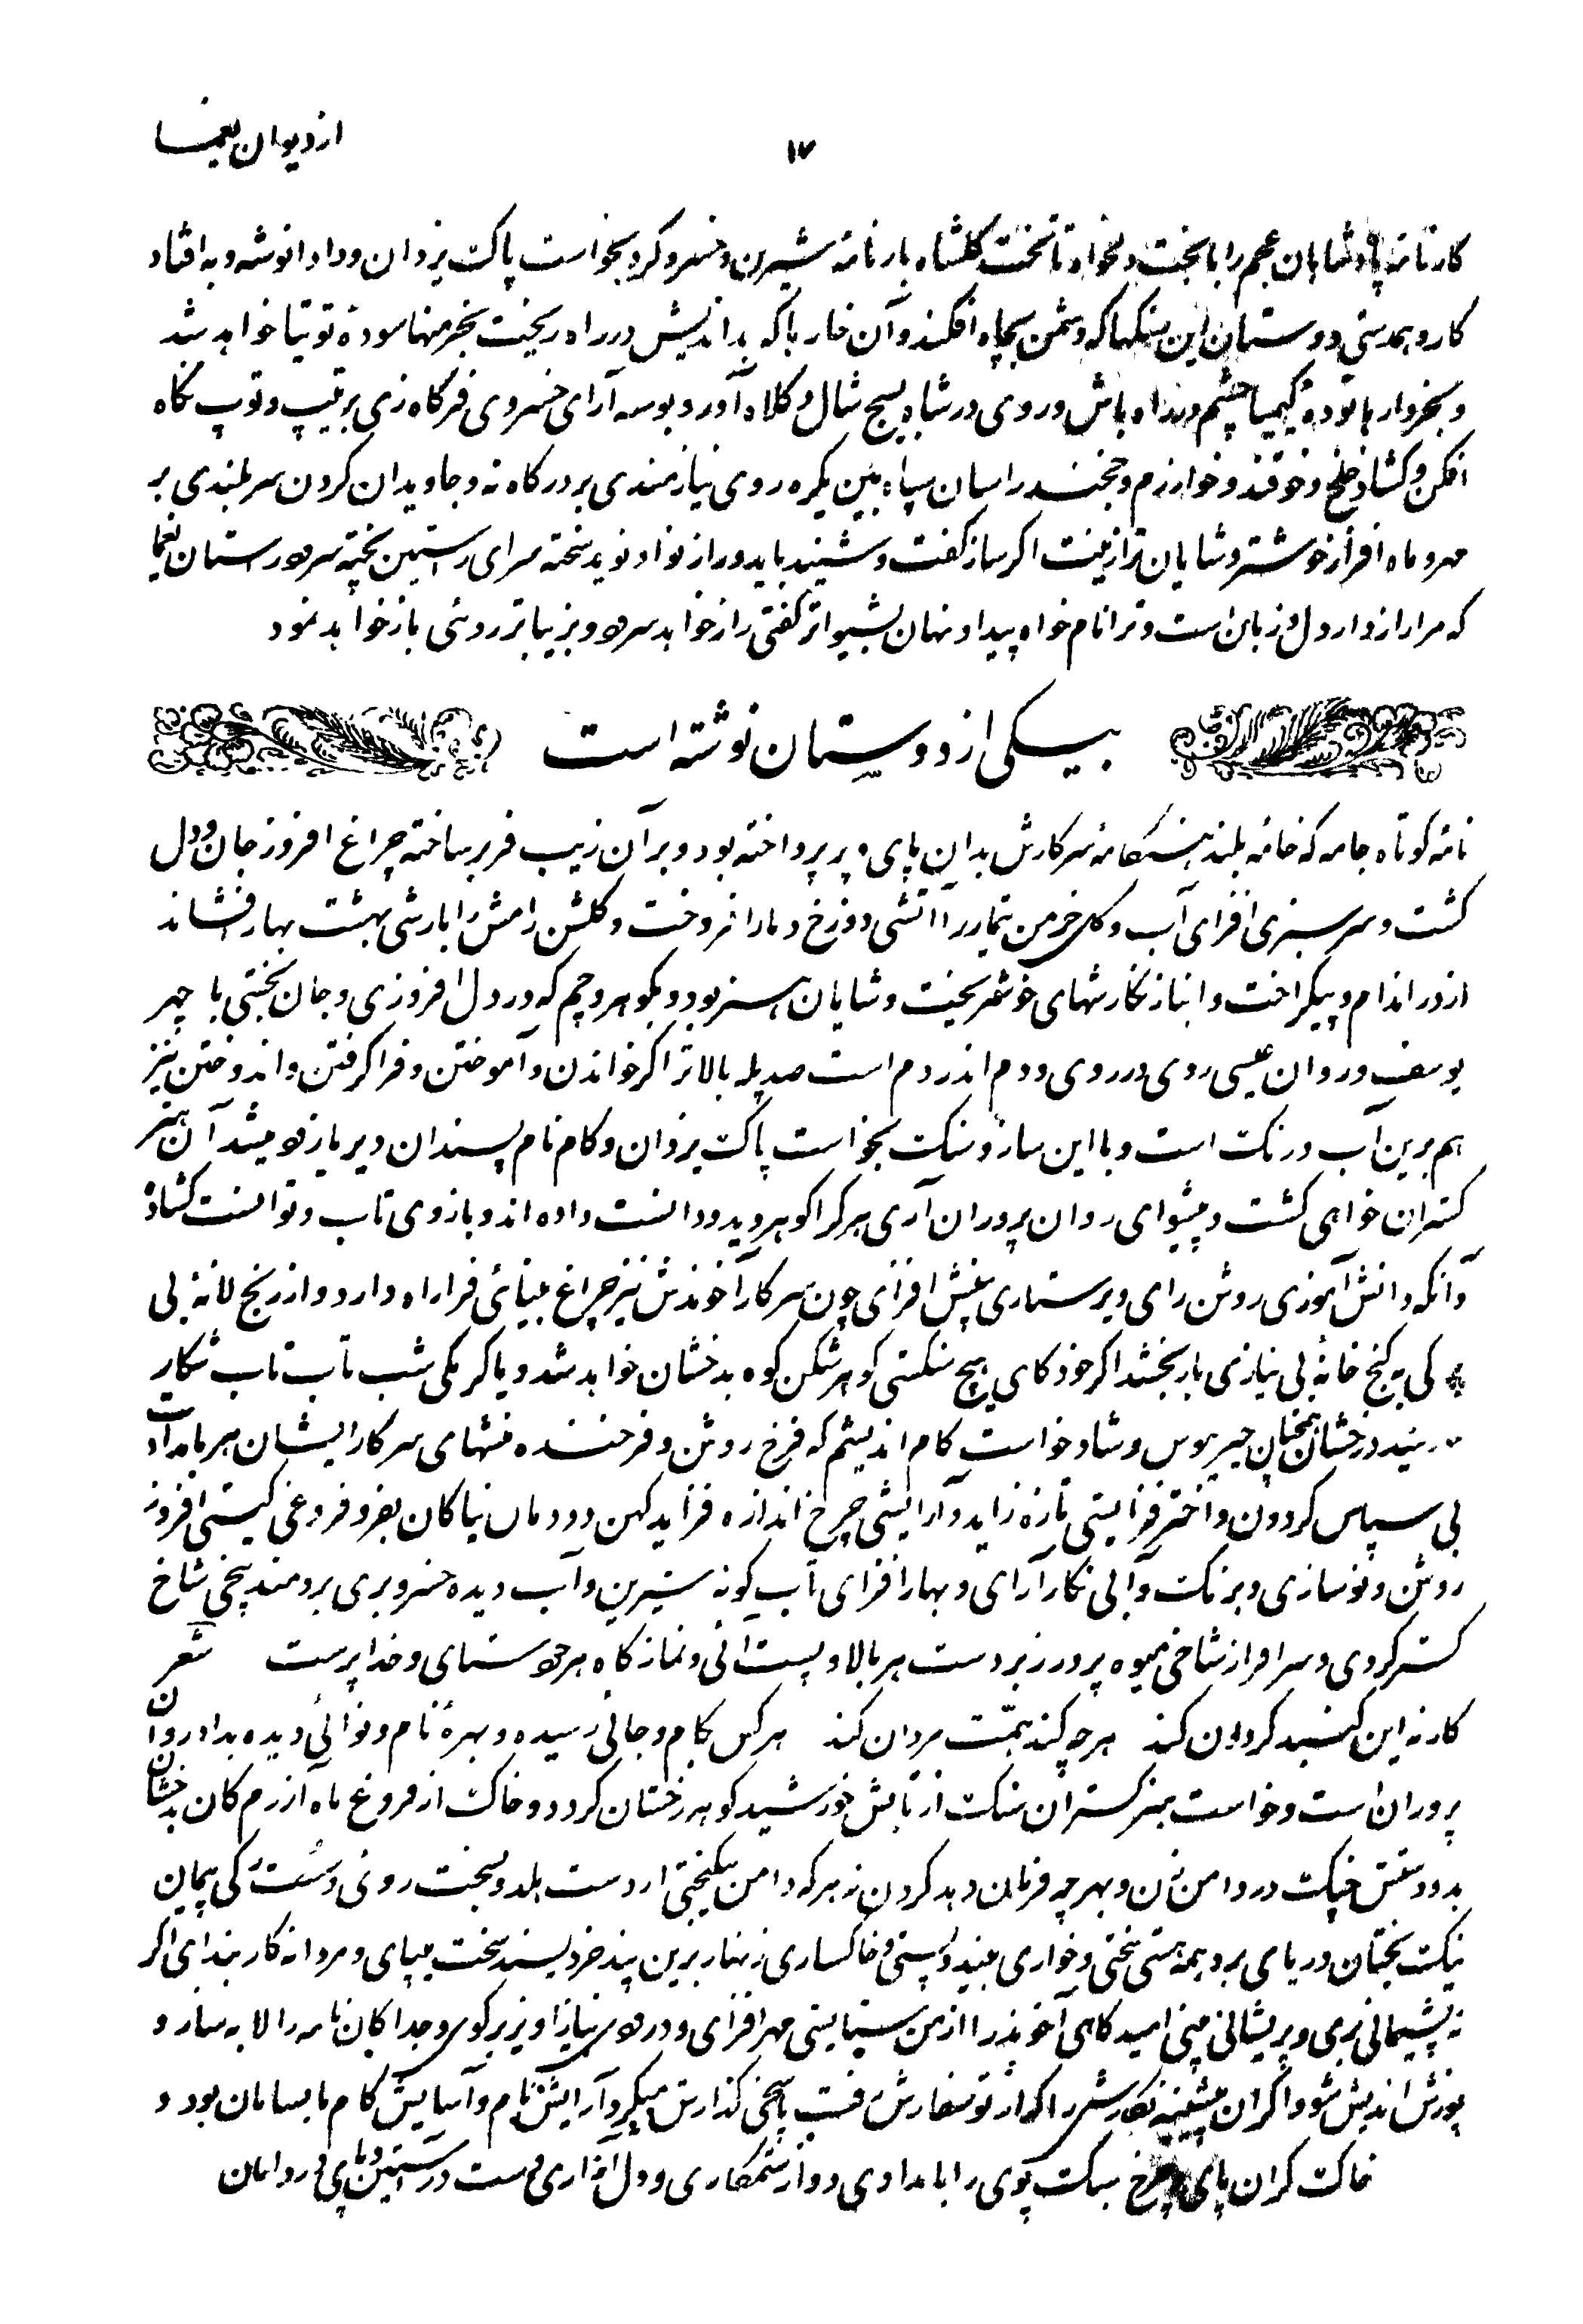 از دیوان یغما
۱۷
کارنامه پادشاهان عجم را با بخت دلخواه تا تخت گلشاه بارنامه شیرین و خسرو کرد بخواست پاک یزدان و داد انوشه و به افتاد
کار و همدستی دوستان این سنگها که دشمن بچاه افکند و آن خار ها که بداندیش در راه ریخت بخرمنها سوده توتیا خواهد شد
و بخروارها توده کیمیا چشم در راه باش و روی در شاه بسیج شال و کلاه آور و بوسه آرای خسروی فرگاه زی بر تیپ و توپ نگاه
افکن و گشاد خلخ و خوقند و خوارزم و خجند را سامان سپاه بین یکره روی نیازمندی بر درگاه نه و جاویدان گردن سربلندی بر
مهر و ماه افراز خوشتر و شایان تر از منت اگر ساز گفت و شنید باید و راز نواد نوید سخته سرای راستین پخته سرود راستان یغما
که مرا راز دار دل و زبان است و ترا نام خواه پیدا و نهان بشیواتر گفتی راز خواهد سرود و بزیباتر روئی باز خواهد نمود
بیکی از دوستان نوشته است
نامه کوتاه جامه که خامه بلند هنگامه سرکارش بدان پای و پر پرداخته بود و بر آن زیب و فر بر ساخته چراغ افروز جان و دل
گشت و سرسبزی افزای آب و گل خرمن تیمار را آتشی دوزخ دمار افروخت و گلشن رامش را بارشی بهشت بهار افشاند
از در اندام و پیکر اخت و انباز نگارشهای خوشتر بخت و شایان هنر بود و بگوهر و چم که در دل افروزی و جان بخشی با چهر
یوسف و روان عیسی روی در روی و دم اندر دم است صد پله بالاتر اگر خواندن و آموختن و فرا گرفتن و اندوختن نیز
هم برین آب و رنگ است و با این ساز و سنگ بخواست پاک یزدان و کام نام پسندان دیر یا زود میشد آن هنر
گستران خواهی گشت و پیشوای روان پروران آری هر کرا گوهر وید و دانست داده اند و بازوی تاب و توانست گشاد
و آنکه دانش آموزی روشن رای و پرستاری بینش افزای چون سرکار آخوندش نیز چراغ بینائی فرا راه دارد و از رنج لانه بی
برگی به گنج خانه بی نیازی بار بخشد اگر خود کای هیچ سنگی گوهر شکن کوه بدخشان خواهد شد و یا کرمکی شب تاب تاب شکار
خورشید درخشان همچنان چیر هوس و شاد خواست کام اندیشم که فرخ روش و فرخنده منشهای سرکار ایشان هر بامداد
بی سپاس گردون و اختر فزایشی تازه زاید و آرایشی چرخ اندازه فزاید کهن دودمان نیاکان بفر و فروغی گیتی افروز
روشن و نوسازی و برنگ و آبی نگار آرای و بهار افزای تاب گونه شیرین و آب دیده خسرو بری برومند بیخی شاخ
گستر گردی و سرافراز شاخی میوه پرور زبردست هر بالا و پست آئی و نمازگاه هر خودستای و خداپرست شعر
کار نه این گنبد گردون کند هر چه کند همت مردان کند هر کس بکام و جائی رسیده و بهره نام و نوائی دیده بداد روان
پروران است و خواست هنر گستران سنگ از تابش خورشید گوهر رخشان گردد و خاک از فروغ ماه آزرم کان بدخشان
بدو دستش چنگ در دامن زن و بهر چه فرمان دهد گردن نه هر که دامن نیکبختی از دست هلد و بخت روئی و سست رگی پیمان
نیک بختان در پای برد همه هستی سختی و خواری بیند و پستی و خاکساری زنهار برین پند خرد پسند سخت بپای و مردانه کار بند ای اگر
نه پشیمانی بری و پریشانی بینی امیدگاهی آخوند را از من ستایشی مهر افزای و درودی نیاز آویز برگوی و جداگان نامه را لابه ساز و
پوزش اندیش شو و اگر آن پیشینه نگارش را که از تو سفارش رفت پاسخی گذارش میگیرد آرایش نام و آسایش کام ما بسامان بود و
خاک گران پای و چرخ سبک پوی را بامدادی دو از ستمکاری و دل آزاری دست در آستین و پای در دامان